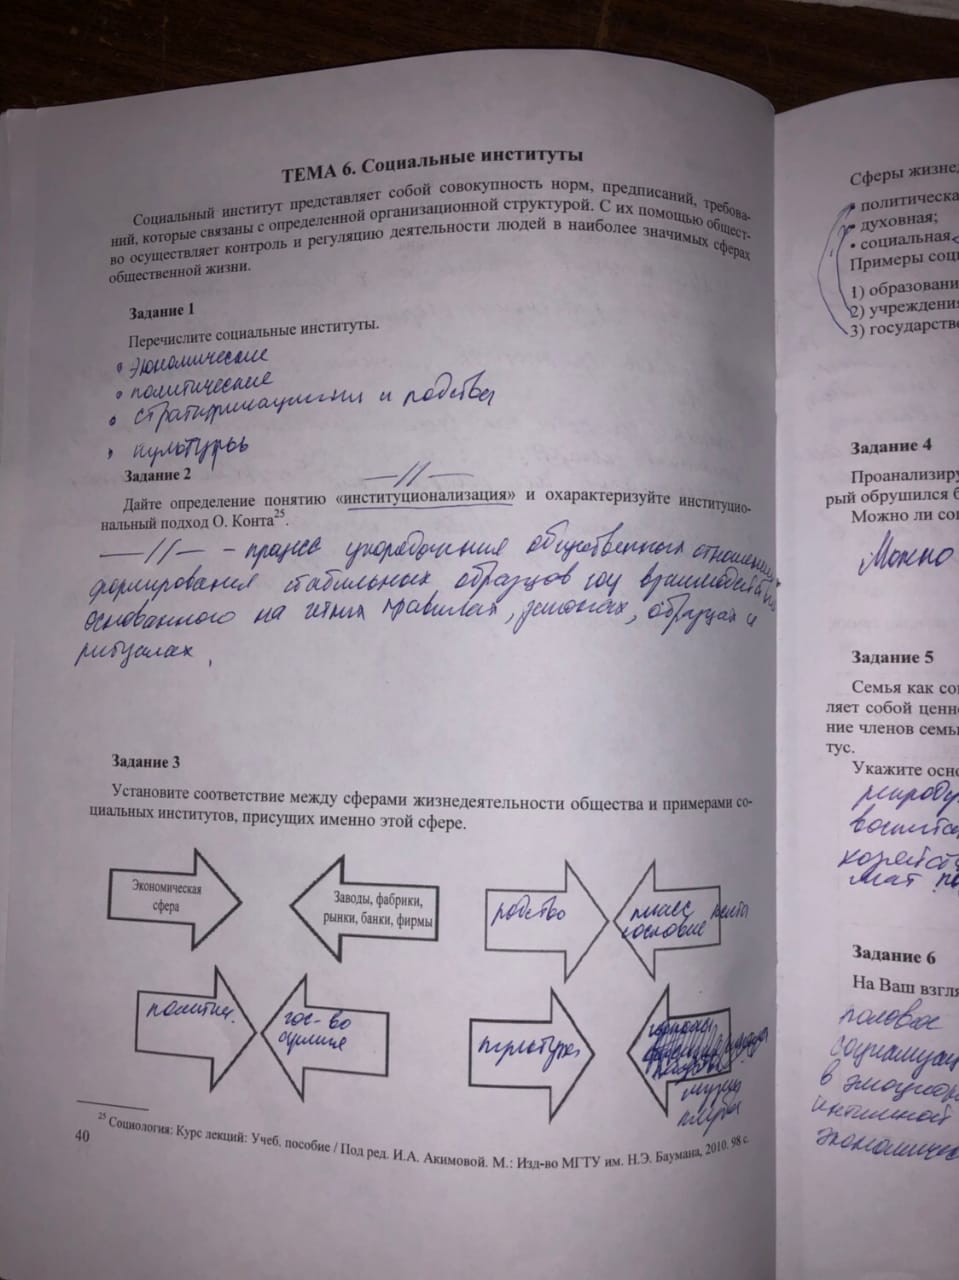 ТЕМА 6. Социальные институты
Социальный институт представляет собой совокупность норм, предписаний, требова-
ний, которые связаны с определенной организационной структурой. С их помощью общест-
во осуществляет контроль и регуляцию деятельности людей в наиболее значимых сферах
общественной жизни.
Задание 1
Перечислите социальные институты.
• экономические
• политические
• стратификации и родства
• культуры
Задание 2
—//—
Дайте определение понятию «институционализация» и охарактеризуйте институцио-
нальный подход О. Конта25.
—//— - процесс упорядочения общественных отношений
формирования стабильных образцов соц взаимодействия
основанного на чётких правилах, законах, образцах и
ритуалах.
Задание 3
Установите соответствие между сферами жизнедеятельности общества и примерами со-
циальных институтов, присущих именно этой сфере.
Экономическая
сфера
Заводы, фабрики,
рынки, банки, фирмы
родство
класс
сословие
политич.
гос-во
культура
музеи
клубы
25 Социология: Курс лекций: Учеб. пособие / Под ред. И.А. Акимовой. М.: Изд-во МГТУ им. Н.Э. Баумана, 2010. 98 с.
40
Сферы жизне
• политическа
• духовная;
• социальная
Примеры соц
1) образовани
2) учреждения
3) государстве
Задание 4
Проанализиру
рый обрушился б
Можно ли со
Можно
Задание 5
Семья как со
ляет собой ценн
ние членов семь
тус.
Укажите осно
репроду
воспит
хозяйст
мат по
Задание 6
На Ваш взгля
половое
социализац
в эмоцион
интимной
экономическ